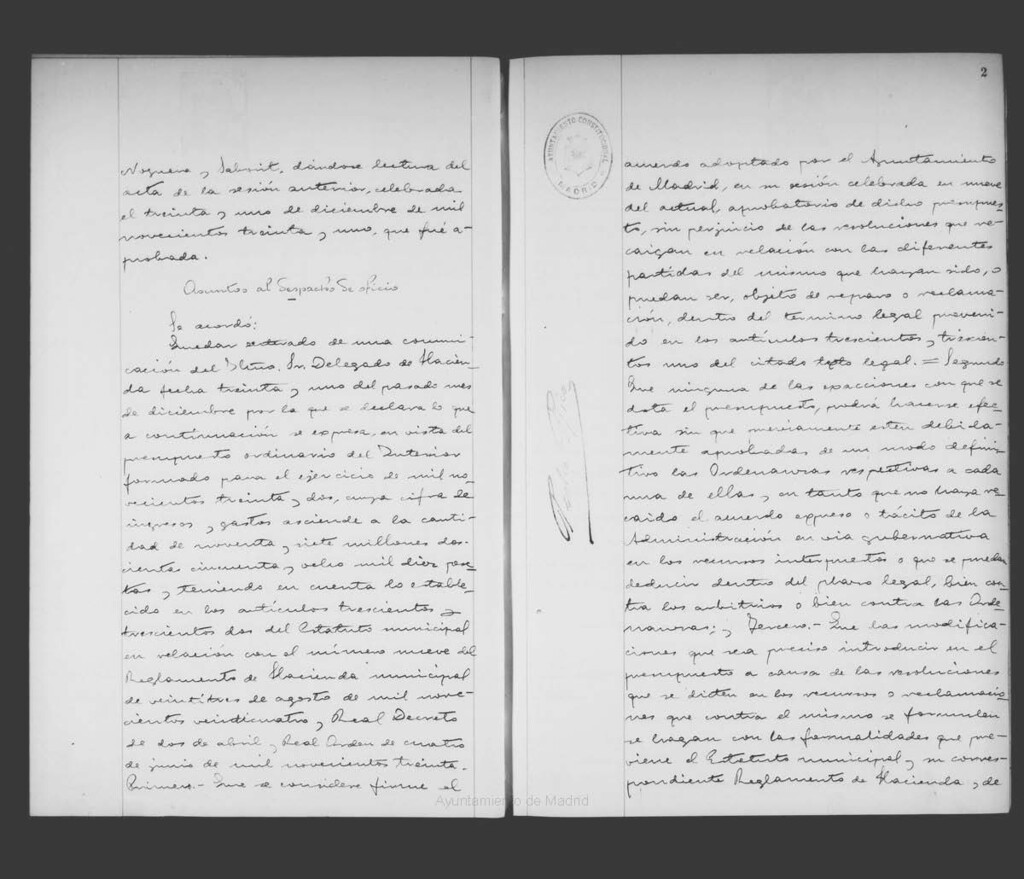 Noguera y Saborit, dándose lectura del
acta de la sesión anterior, celebrada
el treinta y uno de diciembre de mil
novecientos treinta y uno, que fué a-
probada.
Asuntos al despacho de oficio
Se acordó:
Quedar enterado de una comuni-
cación del Iltmo. Sr. Delegado de Hacien-
da fecha treinta y uno del pasado mes
de diciembre por la que se declara lo que
a continuación se expresa, en vista del
presupuesto ordinario del Interior
formado para el ejercicio de mil no-
vecientos treinta y dos, cuya cifra de
ingresos y gastos asciende a la canti-
dad de noventa y siete millones dos-
cientas cincuenta y ocho mil diez pese-
tas, y teniendo en cuenta lo estable-
cido en los artículos trescientos y
trescientos dos del Estatuto municipal
en relación con el número nueve del
Reglamento de Hacienda municipal
de veintitres de agosto de mil nove-
cientos veinticuatro, y Real Decreto
de dos de abril y Real Orden de cuatro
de junio de mil novecientos treinta.
Primero.- Que se considere firme el
2
AYUNTAMIENTO CONSTITUCIONAL
MADRID
acuerdo adoptado por el Ayuntamiento
de Madrid, en su sesión celebrada en nueve
del actual, aprobatorio de dicho presupues-
to, sin perjuicio de las resoluciones que re-
caigan en relación con las diferentes
partidas del mismo que hayan sido, o
puedan ser, objeto de reparo o reclama-
ción, dentro del término legal preveni-
do en los artículos trescientos y trescien-
tos uno del citado texto legal. = Segundo
Que ninguna de las exacciones con que se
dota el presupuesto, podrá hacerse efec-
tiva sin que previamente esten debida-
mente aprobadas de un modo defini-
tivo las Ordenanzas respectivas a cada
una de ellas, y en tanto que no haya re-
caido el acuerdo expreso o tácito de la
Administración en vía gubernativa
en los recursos interpuestos o que se puedan
deducir dentro del plazo legal, bien con-
tra los arbitrios o bien contra las Orde-
nanzas; y Tercero.- Que las modifica-
ciones que sea preciso introducir en el
presupuesto a causa de las resoluciones
que se dicten en los recursos o reclamacio-
nes que contra el mismo se formulen
se hagan con las formalidades que pre-
viene el Estatuto municipal y su corres-
pondiente Reglamento de Hacienda, y de
Ayuntamiento de Madrid